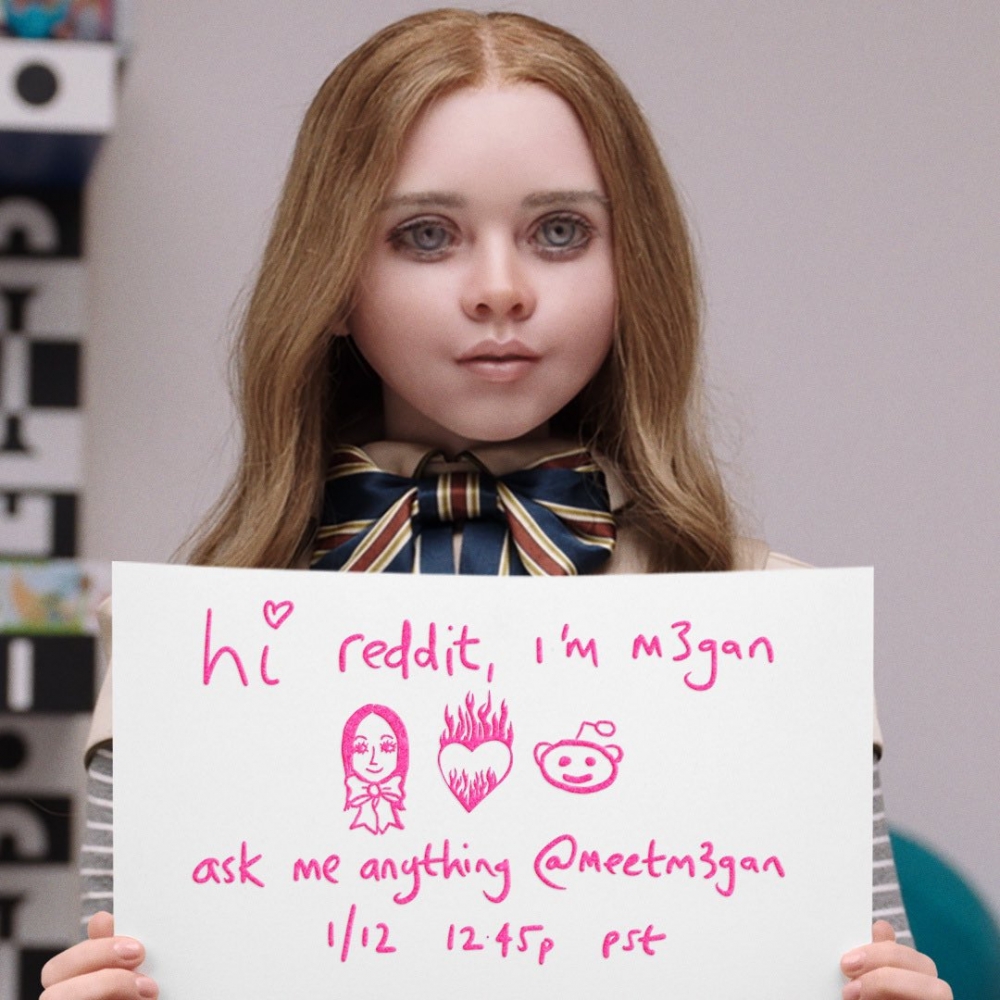 hi reddit, i'm m3gan
ask me anything @meetm3gan
1/12 12:45p pst